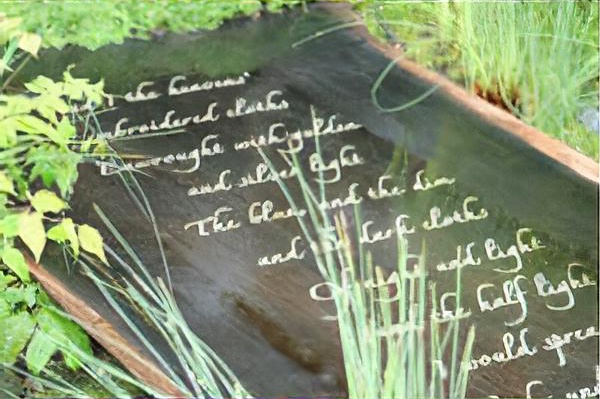 the heavens'
embroidered cloths
Enwrought with golden
and silver light
The blue and the dim
and dark cloths
and light
the half light
would sprea